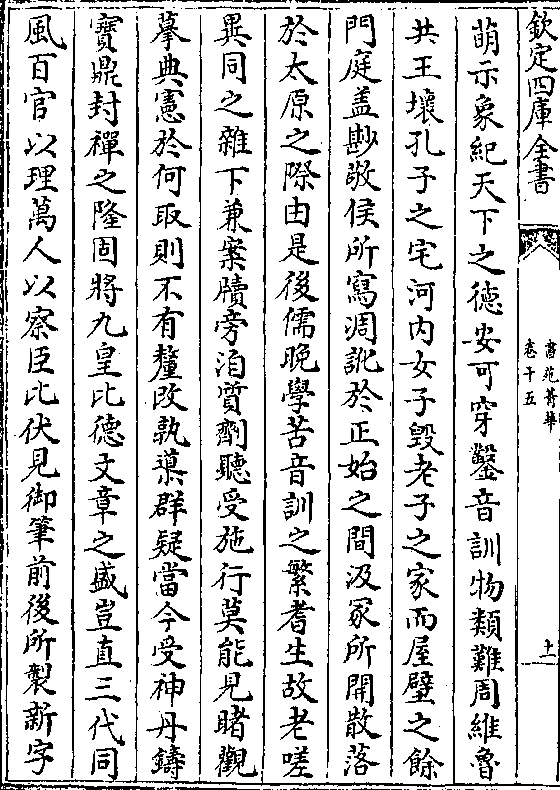 欽定四庫全書
書苑菁華
卷十五
十一
萌示象紀天下之德安可穿鑿音訓物類難周維魯
共王壞孔子之宅河内女子毀老子之家而屋壁之餘
門庭盖尠敬侯所寫凋訛於正始之間汲冢所開散落
於太原之際由是後儒晚學苦音訓之繁耆生故老嗟
異同之雜下兼案牘旁洎質劑聽受施行莫能見睹觀
摹典憲於何取則不有釐改孰導群疑當今受神丹鑄
寳鼎封禪之隆固將九皇比德文章之盛豈直三代同
風百官以理萬人以察臣比伏見御筆前後所製新字